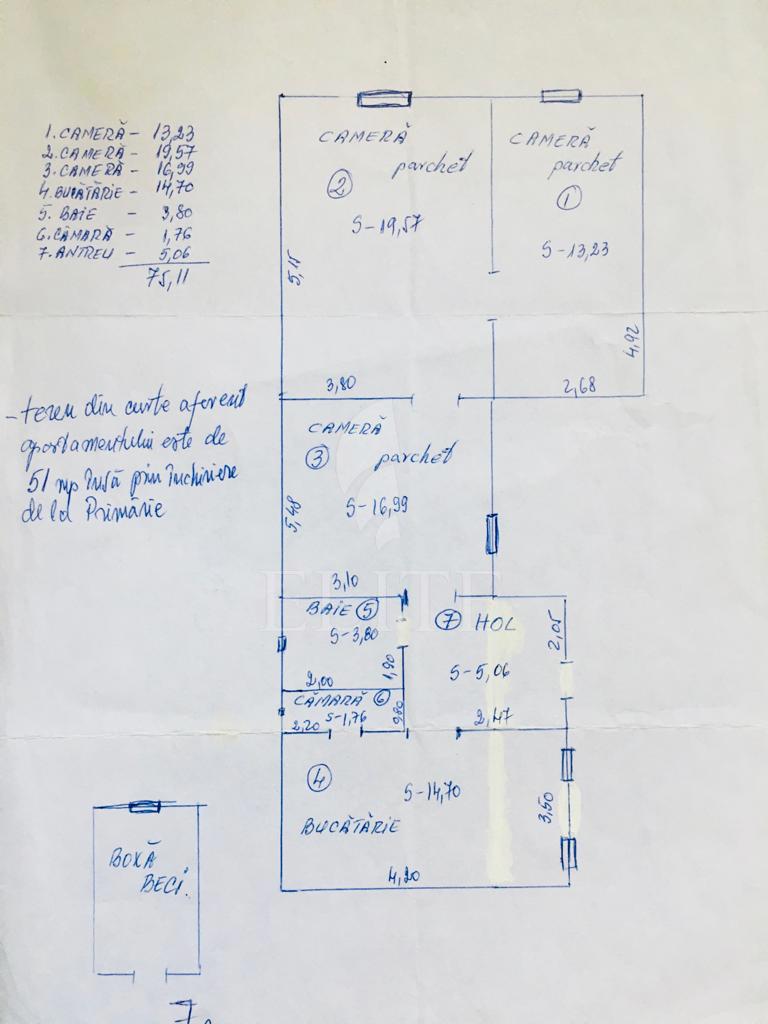 1. CAMERĂ - 13,23
2. CAMERĂ - 19,57
3. CAMERĂ - 16,99
4. BUCĂTĂRIE - 14,70
5. BAIE - 3,80
6. CĂMARĂ - 1,76
7. ANTREU - 5,06
75,11
- teren din curte aferent
apartamentului este de
51 mp însă prin închiriere
de la Primărie
CAMERĂ
parchet
2
S-19,57
5,15
3,80
CAMERĂ
parchet
1
S-13,23
4,92
2,68
CAMERĂ
3
parchet
S-16,99
5,48
3,10
ELITE
BAIE 5
S-3,80
2,00
1,90
7 HOL
2,05
S-5,06
2,47
CĂMARĂ 6
2,20 S-1,76
0,80
4
S-14,70
BUCĂTĂRIE
3,50
4,20
BOXĂ
BECI.